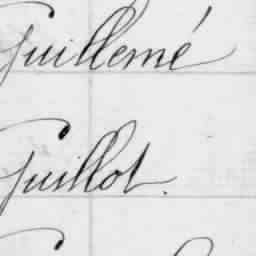 Guillemé
Guillot.